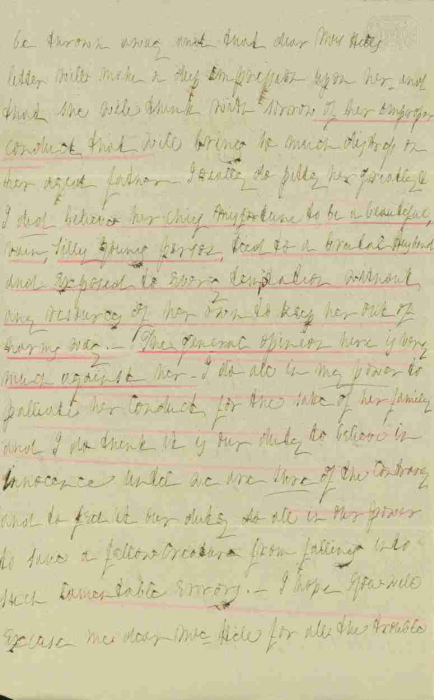 be thrown away and that dear Mrs Hill's
letter will make a deep impression upon her, and
that she will think with sorrow of her improper
conduct that will bring so much distress on
her aged father I really do pitty her greatly &
I do believe her chief misfortune to be a beautiful,
vain, silly young person, tied to a brutal husband
and exposed to every temptation without
any resources of her own to keep her out of
harms way. – The general opinion here is very
much against her – I do all in my power to
palliate her conduct, for the sake of her family
and I do think it is our duty to believe in
innocence until we are sure of the contrary
and to feel it our duty to all in our power
to save a fellow creature from falling into
such lamentable errors. – I hope you will
excuse me dear Mrs Hill for all the trouble